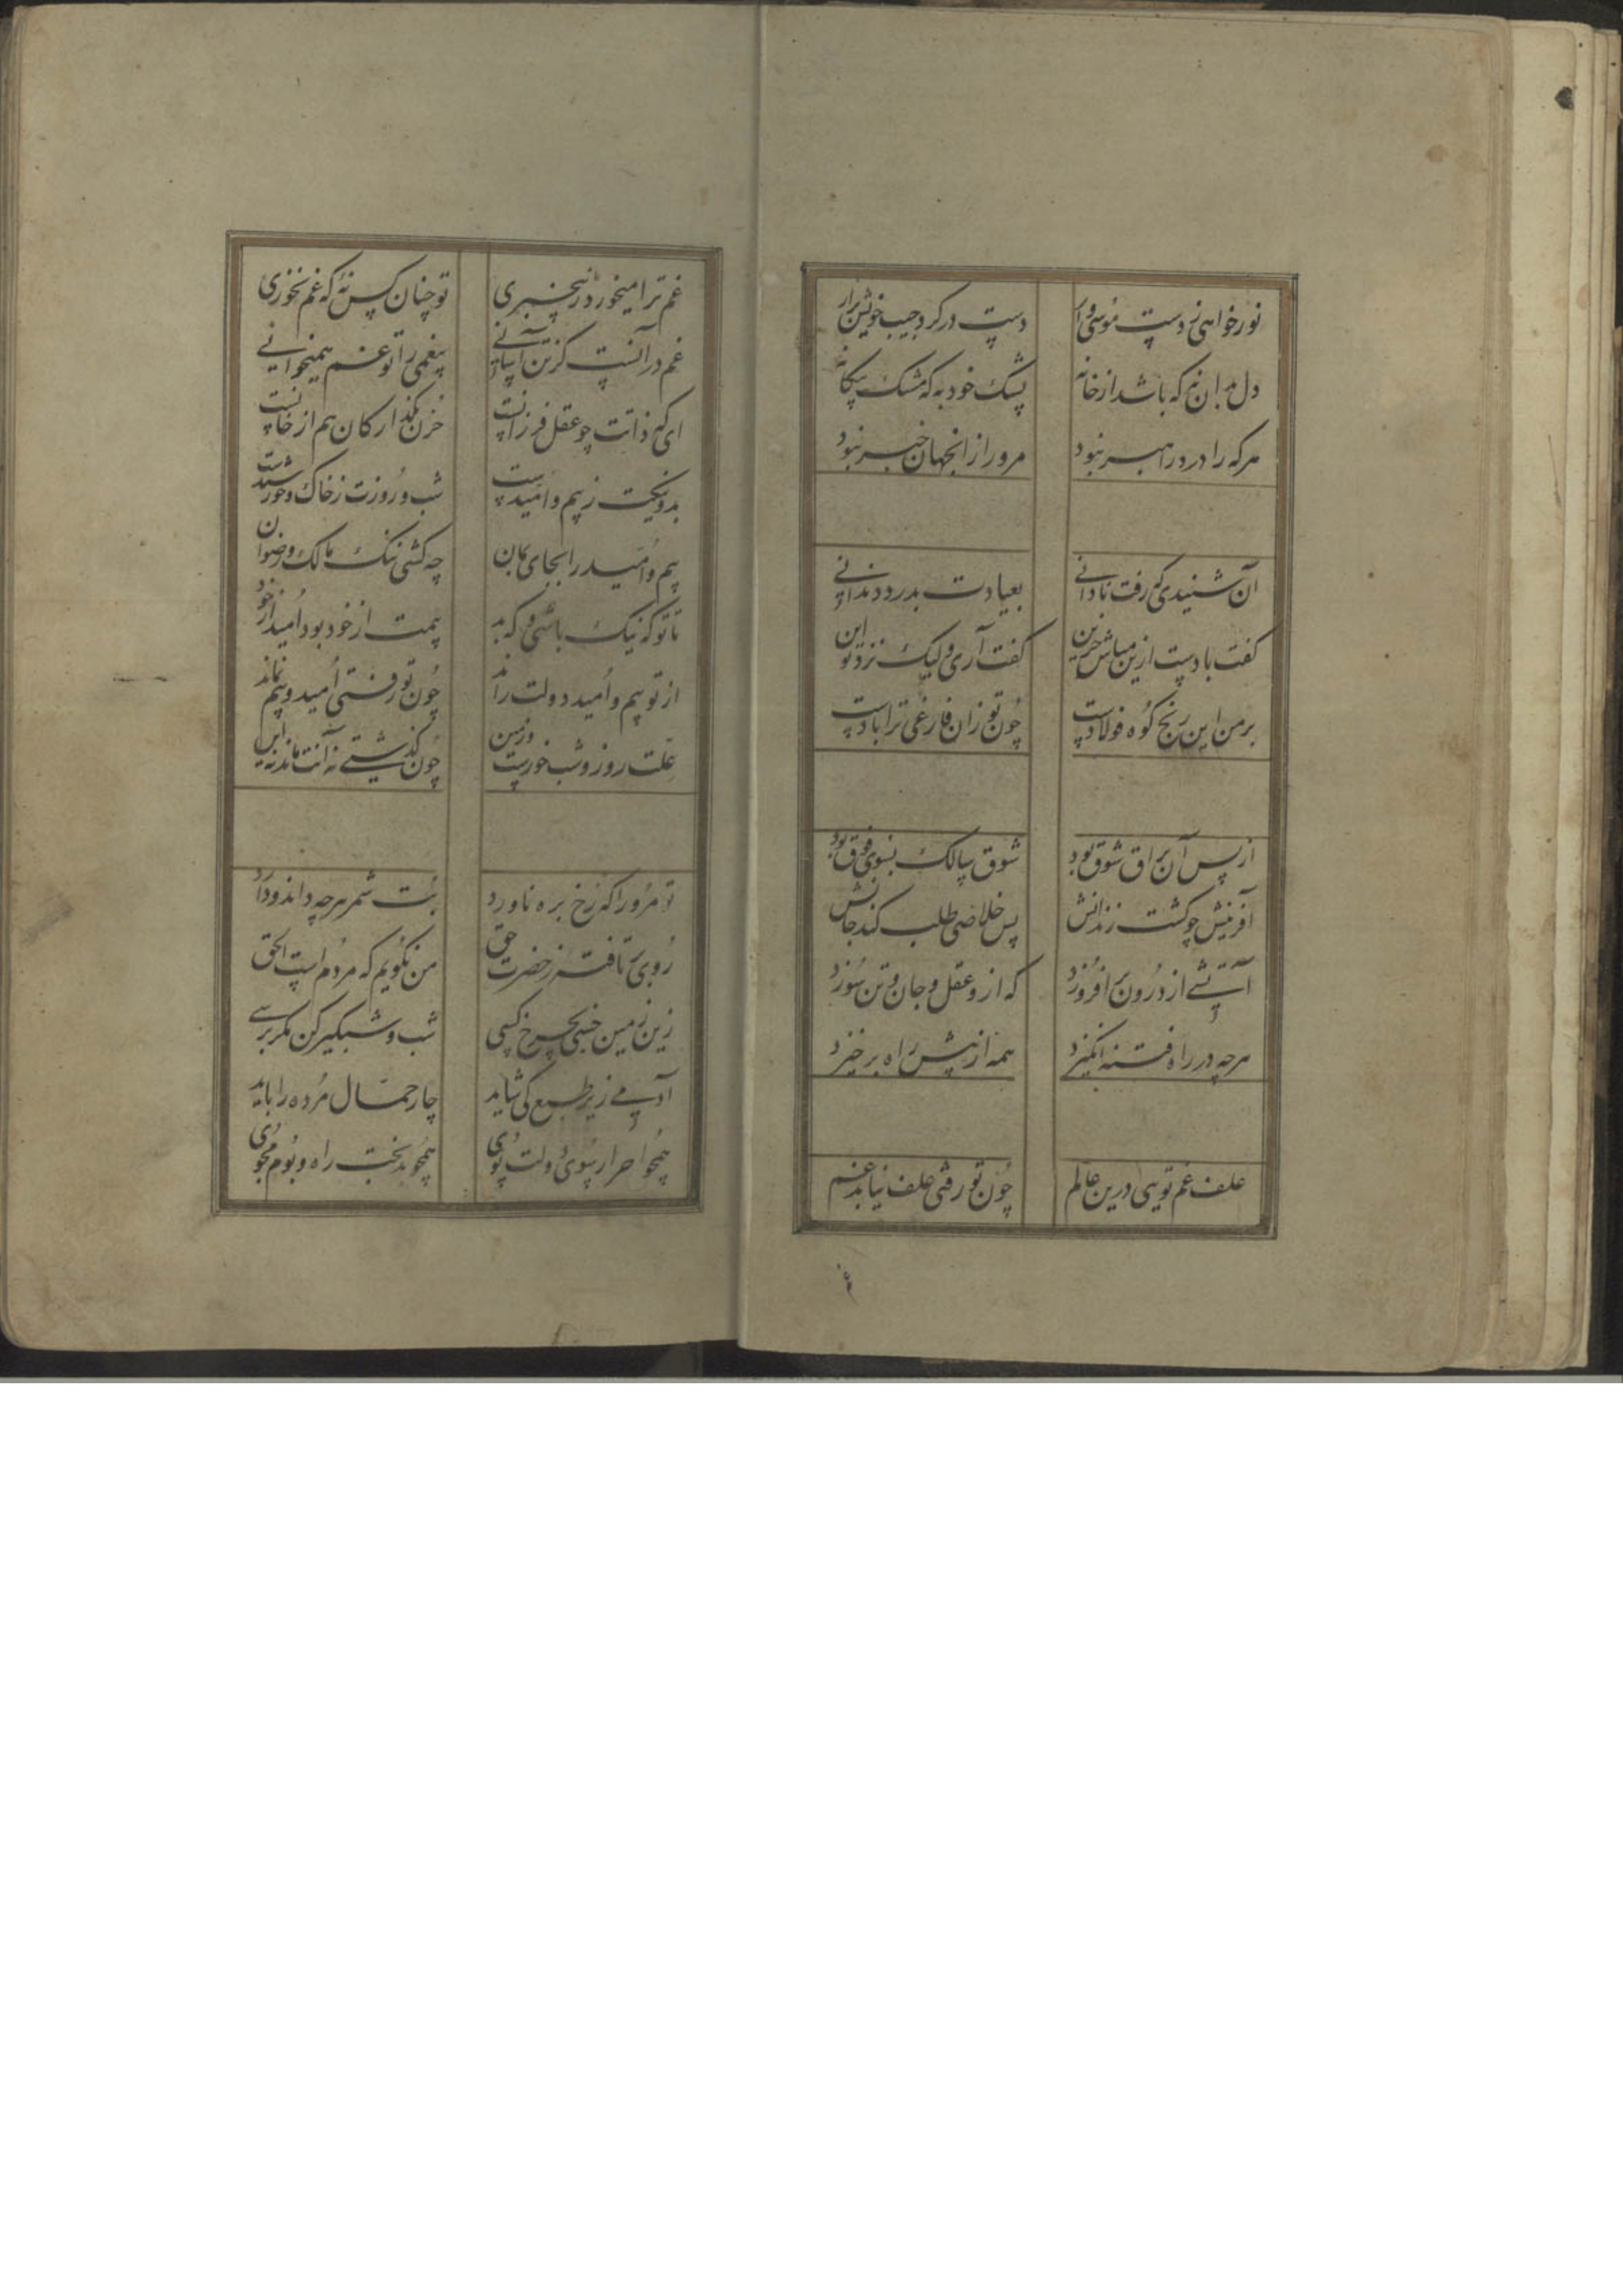 نور خواهی ز دست موسی وار دست در گرد جیب خویش برار
دل بدان نه که باشد از خانه پشک خود به که مشک بیگانه
هرکه را درد راهبر نبود مرورا زان جهان خبر نبود
آن شنیدی که رفت نادانی بعیادت بدرد دندانی
گفت بادست ازین مباش حزین گفت آری ولیک نزد تو این
بر من این رنج کوه فولادست چون تو زان فارغی ترا بادست
از پس آن براق شوق بود شوق سالک بسوی فوق بود
آفرینش چو گشت زندانش پس خلاصی طلب کند جانش
آتشی از درون برافروزد که ازو عقل و جان و تن سوزد
هرچه در راه فتنه انگیزد همه از پیش راه برخیزد
علف غم تویی درین عالم چون تو رفتی علف نیابد غم
غم ترا میخورد ز بیخبری تو چنان کس نه که غم نخوری
غم در آنست کز تن آسانی بیغمی را تو غم همیخوانی
ای که ذاتت چو عقل فرزانست حزن بگذار کان هم از خانست
بد و نیکت ز بیم و امیدست شب و روزت ز خاک و خورشیدست
بیم و امید را بجای بمان چه کشی ننک مالک و رضوان
تا تو که نیک باشی و که بد بیمت از خود بود امید از خود
از تو بیم و امید دولت راند چون تو رفتی امید و بیم نماند
علت روز و شب خورست و زمین چون گذشتی نه آنت ماند نه این
تو مرورا که رخ بره ناورد بت شمر هرچه داند و دارد
روی برتافته ز حضرت حق من نگویم که مردم است الحق
زین زمین خسی بچرخ کسی شب و شبگیر کن مگر برسی
آدمی زیر طبع کی شاید چار حمال مرده را باید
همچو احرار سوی دولت پوی همچو بدبخت راه و بوم مجوی